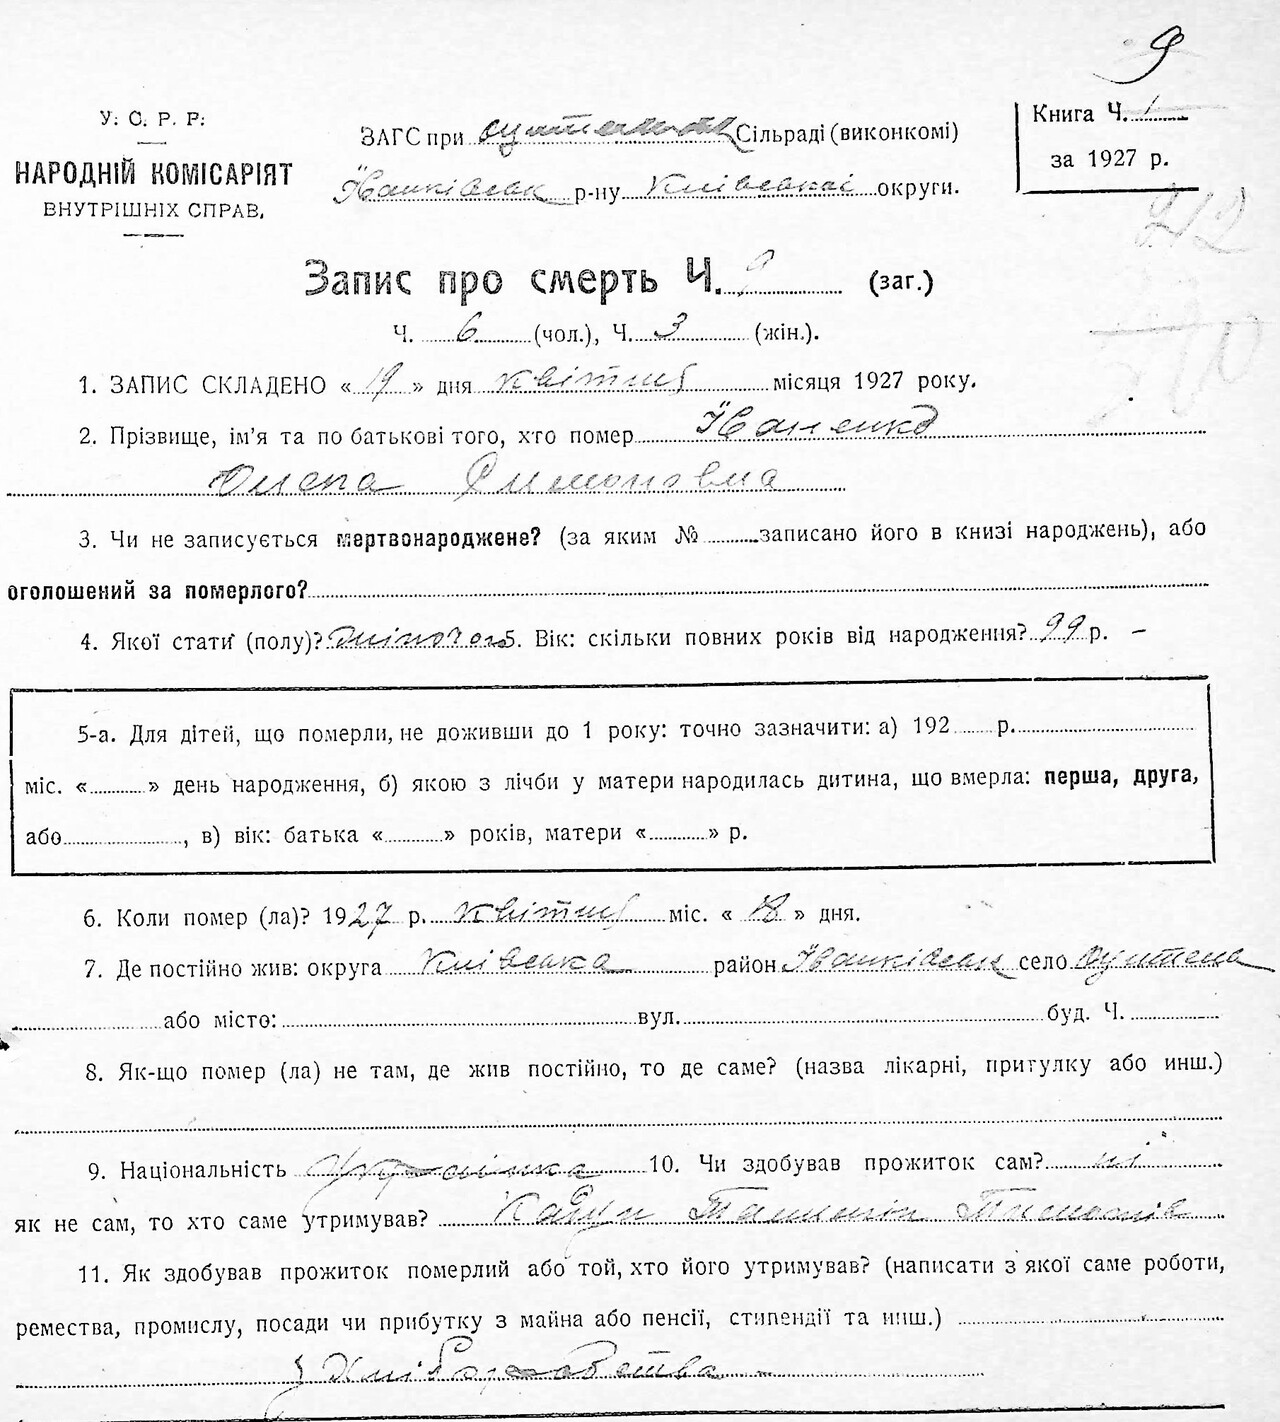 9
У. С. Р. Р.
НАРОДНІЙ КОМІСАРІЯТ
ВНУТРІШНІХ СПРАВ.
ЗАГС при Сільраді (виконкомі)
Іванківськ р-ну Київської округи.
Книга Ч. 1
за 1927 р.
212
Запис про смерть Ч. 9 (заг.)
Ч. 6 (чол.), Ч. 3 (жін.).
1. ЗАПИС СКЛАДЕНО « 19 » дня квітня місяця 1927 року.
2. Прізвище, ім'я та по батькові того, хто помер Іваненко
Олена
3. Чи не записується мертвонароджене? (за яким № записано його в книзі народжень), або
оголошений за померлого?
4. Якої стати (полу)? 5. Вік: скільки повних років від народження? 99 р. –
5-а. Для дітей, що померли, не доживши до 1 року: точно зазначити: а) 192 р.
міс. « » день народження, б) якою з лічби у матери народилась дитина, що вмерла: перша, друга,
або , в) вік: батька « » років, матери « » р.
6. Коли помер (ла)? 1927 р. квітня міс. « 18 » дня.
7. Де постійно жив: округа Київська район Іванківськ село
або місто: вул. буд. Ч.
8. Як-що помер (ла) не там, де жив постійно, то де саме? (назва лікарні, притулку або инш.)
9. Національність Українка 10. Чи здобував прожиток сам? ні
як не сам, то хто саме утримував?
11. Як здобував прожиток померлий або той, хто його утримував? (написати з якої саме роботи,
ремества, промислу, посади чи прибутку з майна або пенсії, стипендії та инш.)
з хліборобства